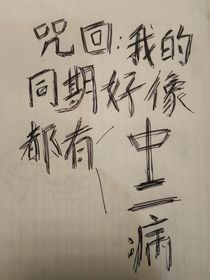 咒回:我的
同期好像
都有
中二病